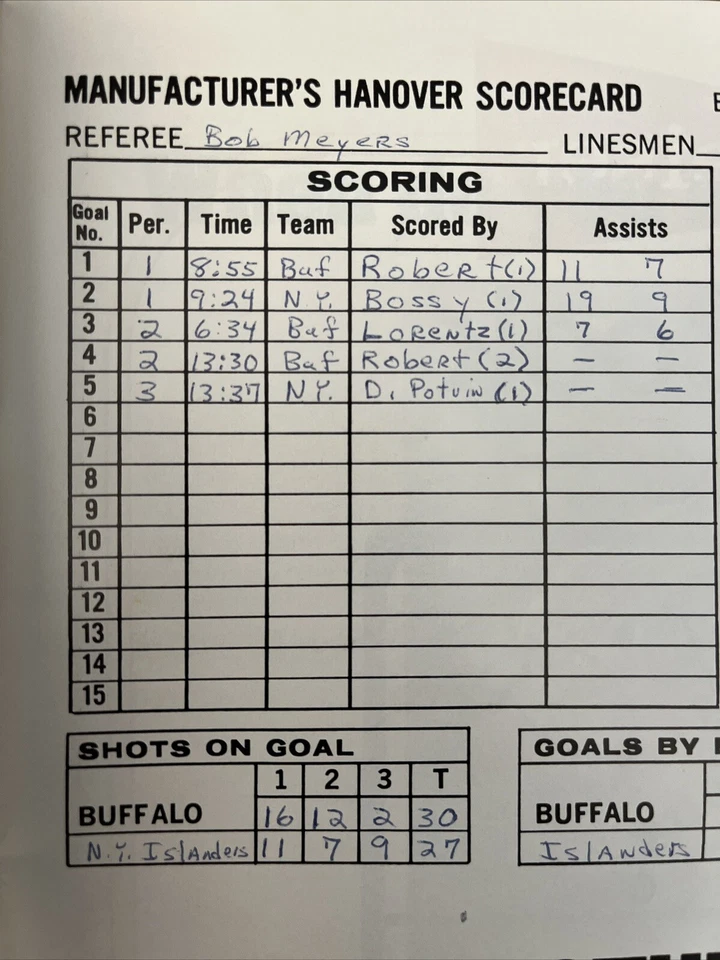 MANUFACTURER'S HANOVER SCORECARD
REFEREE Bob Meyers LINESMEN
SCORING
Goal No. Per. Time Team Scored By Assists
1 1 8:55 Buf Robert (1) 11 7
2 1 9:24 N.Y. Bossy (1) 19 9
3 2 6:34 Buf Lorentz (1) 7 6
4 2 13:30 Buf Robert (2) — —
5 3 13:37 NY. D. Potvin (1) — —
6
7
8
9
10
11
12
13
14
15
SHOTS ON GOAL GOALS BY
1 2 3 T
BUFFALO 16 12 2 30 BUFFALO
N.Y. Islanders 11 7 9 27 Islanders